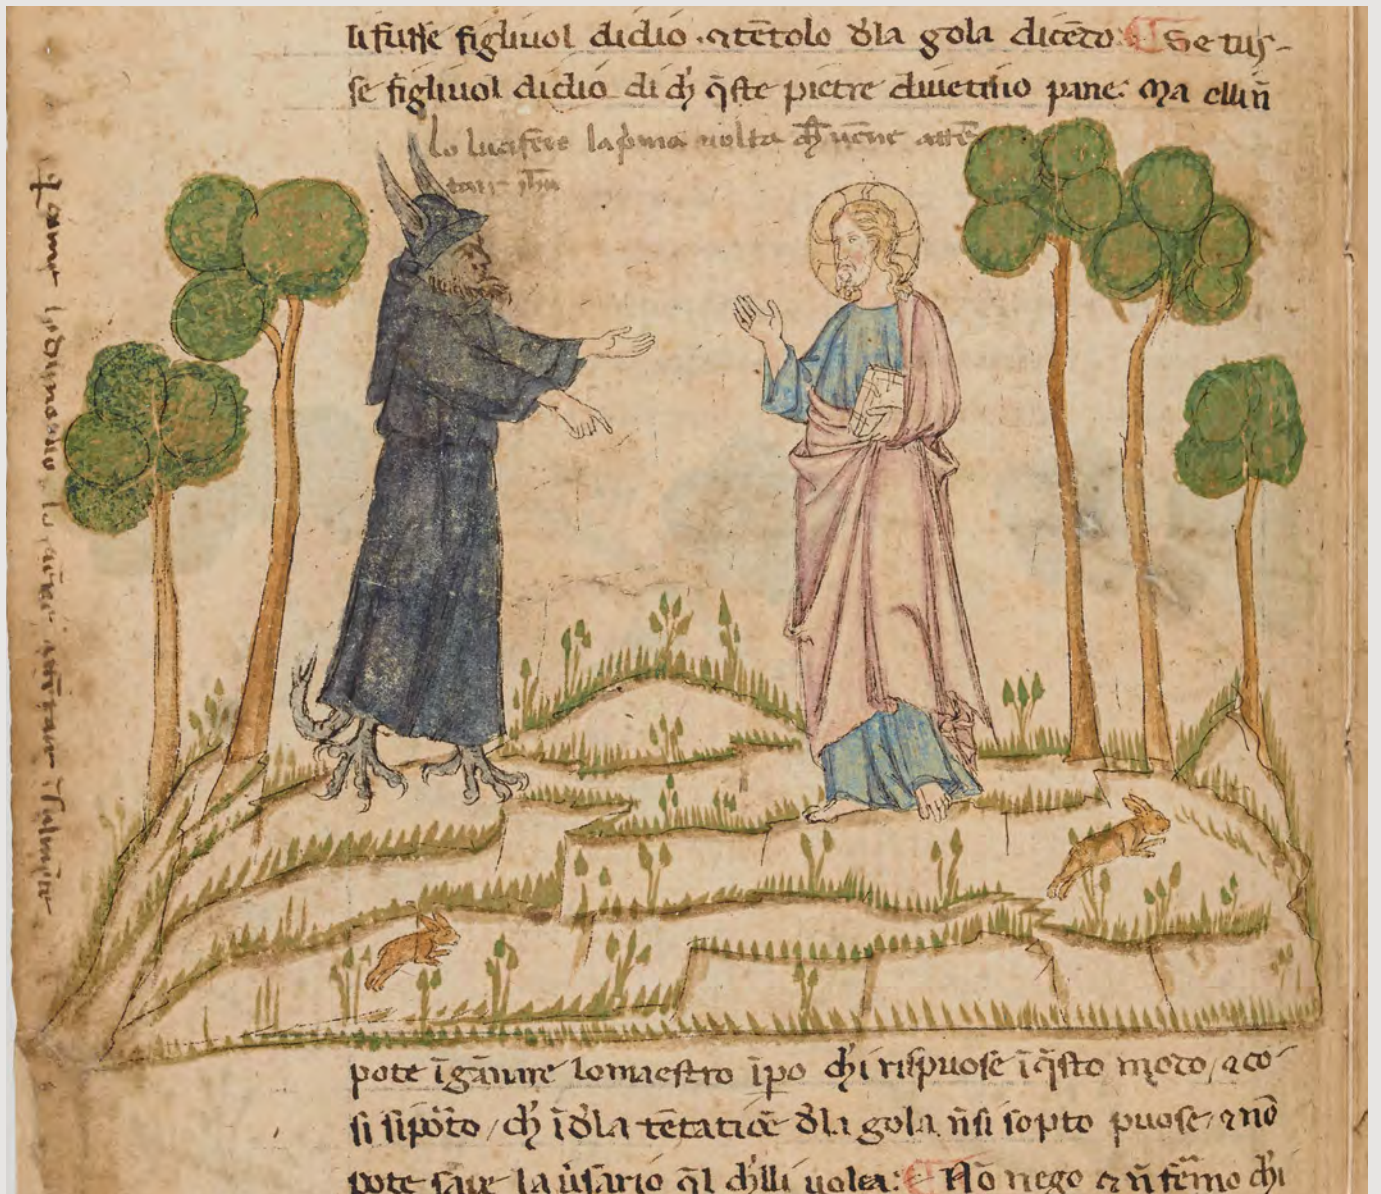 li fusse figliuol didio ⁊ tētolo dla gola dicēdo: Se tus-
se figliuol didio di ch̄ q̄ste pietre diuentino pane: Ma elli n̄
lo lucifero la p̄ma uolta ch̄ uēne attē
tare ih̄u
pote īgānare lo maestro īpo ch̄i rispuose ī q̄sto modo / ⁊ co
si si pōto / ch̄ ī dla tētatiōe dla gola n̄ si sopto puose / ⁊ nō
pote saꝑe lauūsario q̄l ch̄lli uolea: Nō nego ⁊ n̄ ch̄i
Come lo dimonio lo